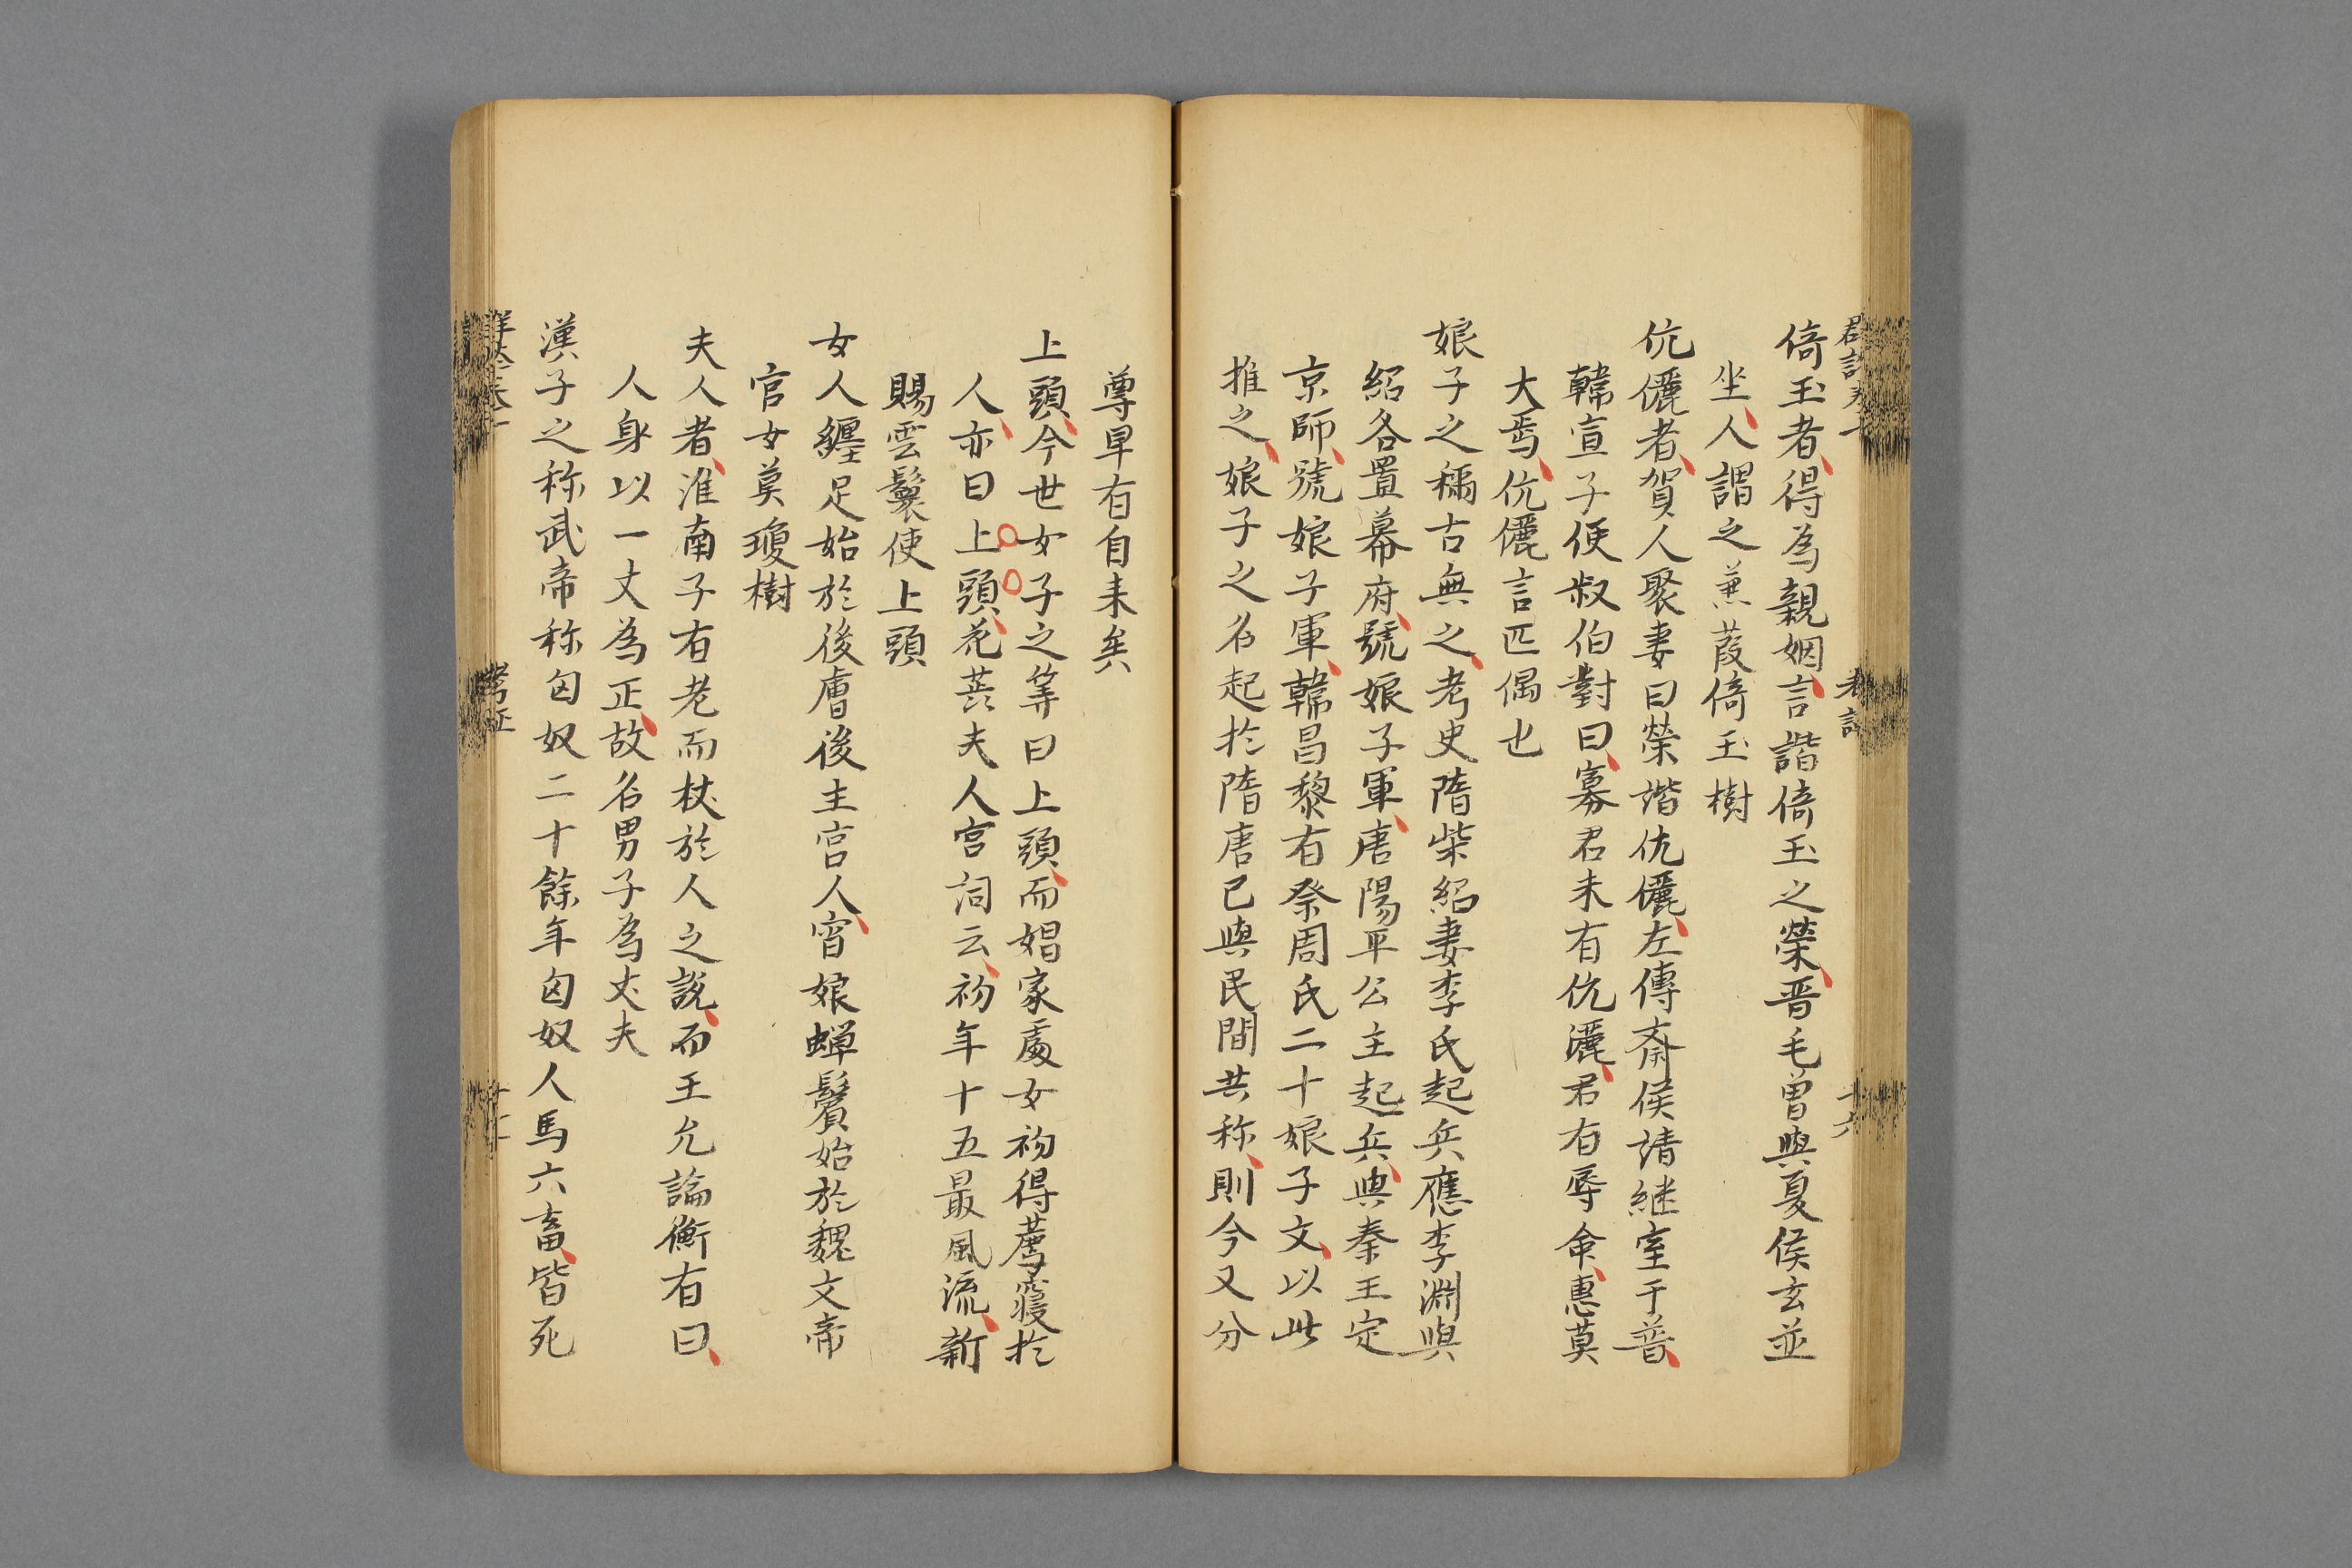 倚玉者得為親姻言諧倚玉之榮晋毛曽與夏侯玄並
坐人謂之蒹葭倚玉樹
伉儷者賀人聚妻曰榮諧伉儷左傳斎侯請継室于普
韓宣子使叔伯對曰寡君未有伉灑君有辱命惠莫
大焉伉儷言匹偶也
娘子之稱古無之考史隋柴紹妻李氏起兵應李淵與
紹各置幕府號娘子軍唐陽平公主起兵與秦王定
京師號娘子軍韓昌黎有祭周氏二十娘子文以此
推之娘子之名起扵隋唐已與民間共称則今又分
尊早有自来矣
上頭今世女子之笄曰上頭而娼家處女初得薦寢扵
人亦曰上頭花蕋夫人宮詞云初年十五最風流新
賜雲鬟使上頭
女人纏足始於後庸後主宫人窅娘蝉鬢始於魏文帝
官女莫瓊樹
夫人者淮南子有老而杖於人之説而王允論衡有曰
人身以一丈為正故名男子為丈夫
漢子之称武帝称匈奴二十餘年匈奴人馬六畜皆死